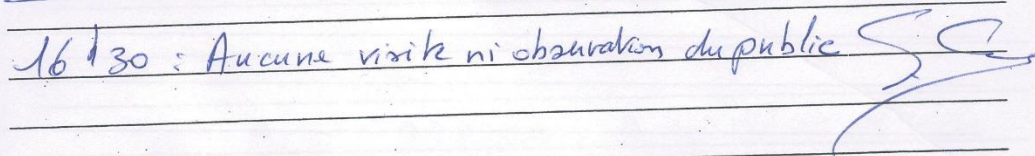 16h30 : Aucune visite ni observation du public